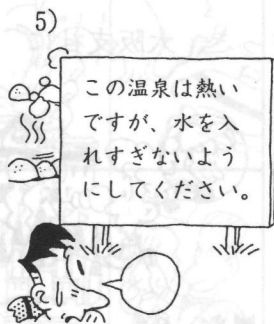 5)
この温泉は熱い
ですが、水を入
れすぎないよう
にしてください。